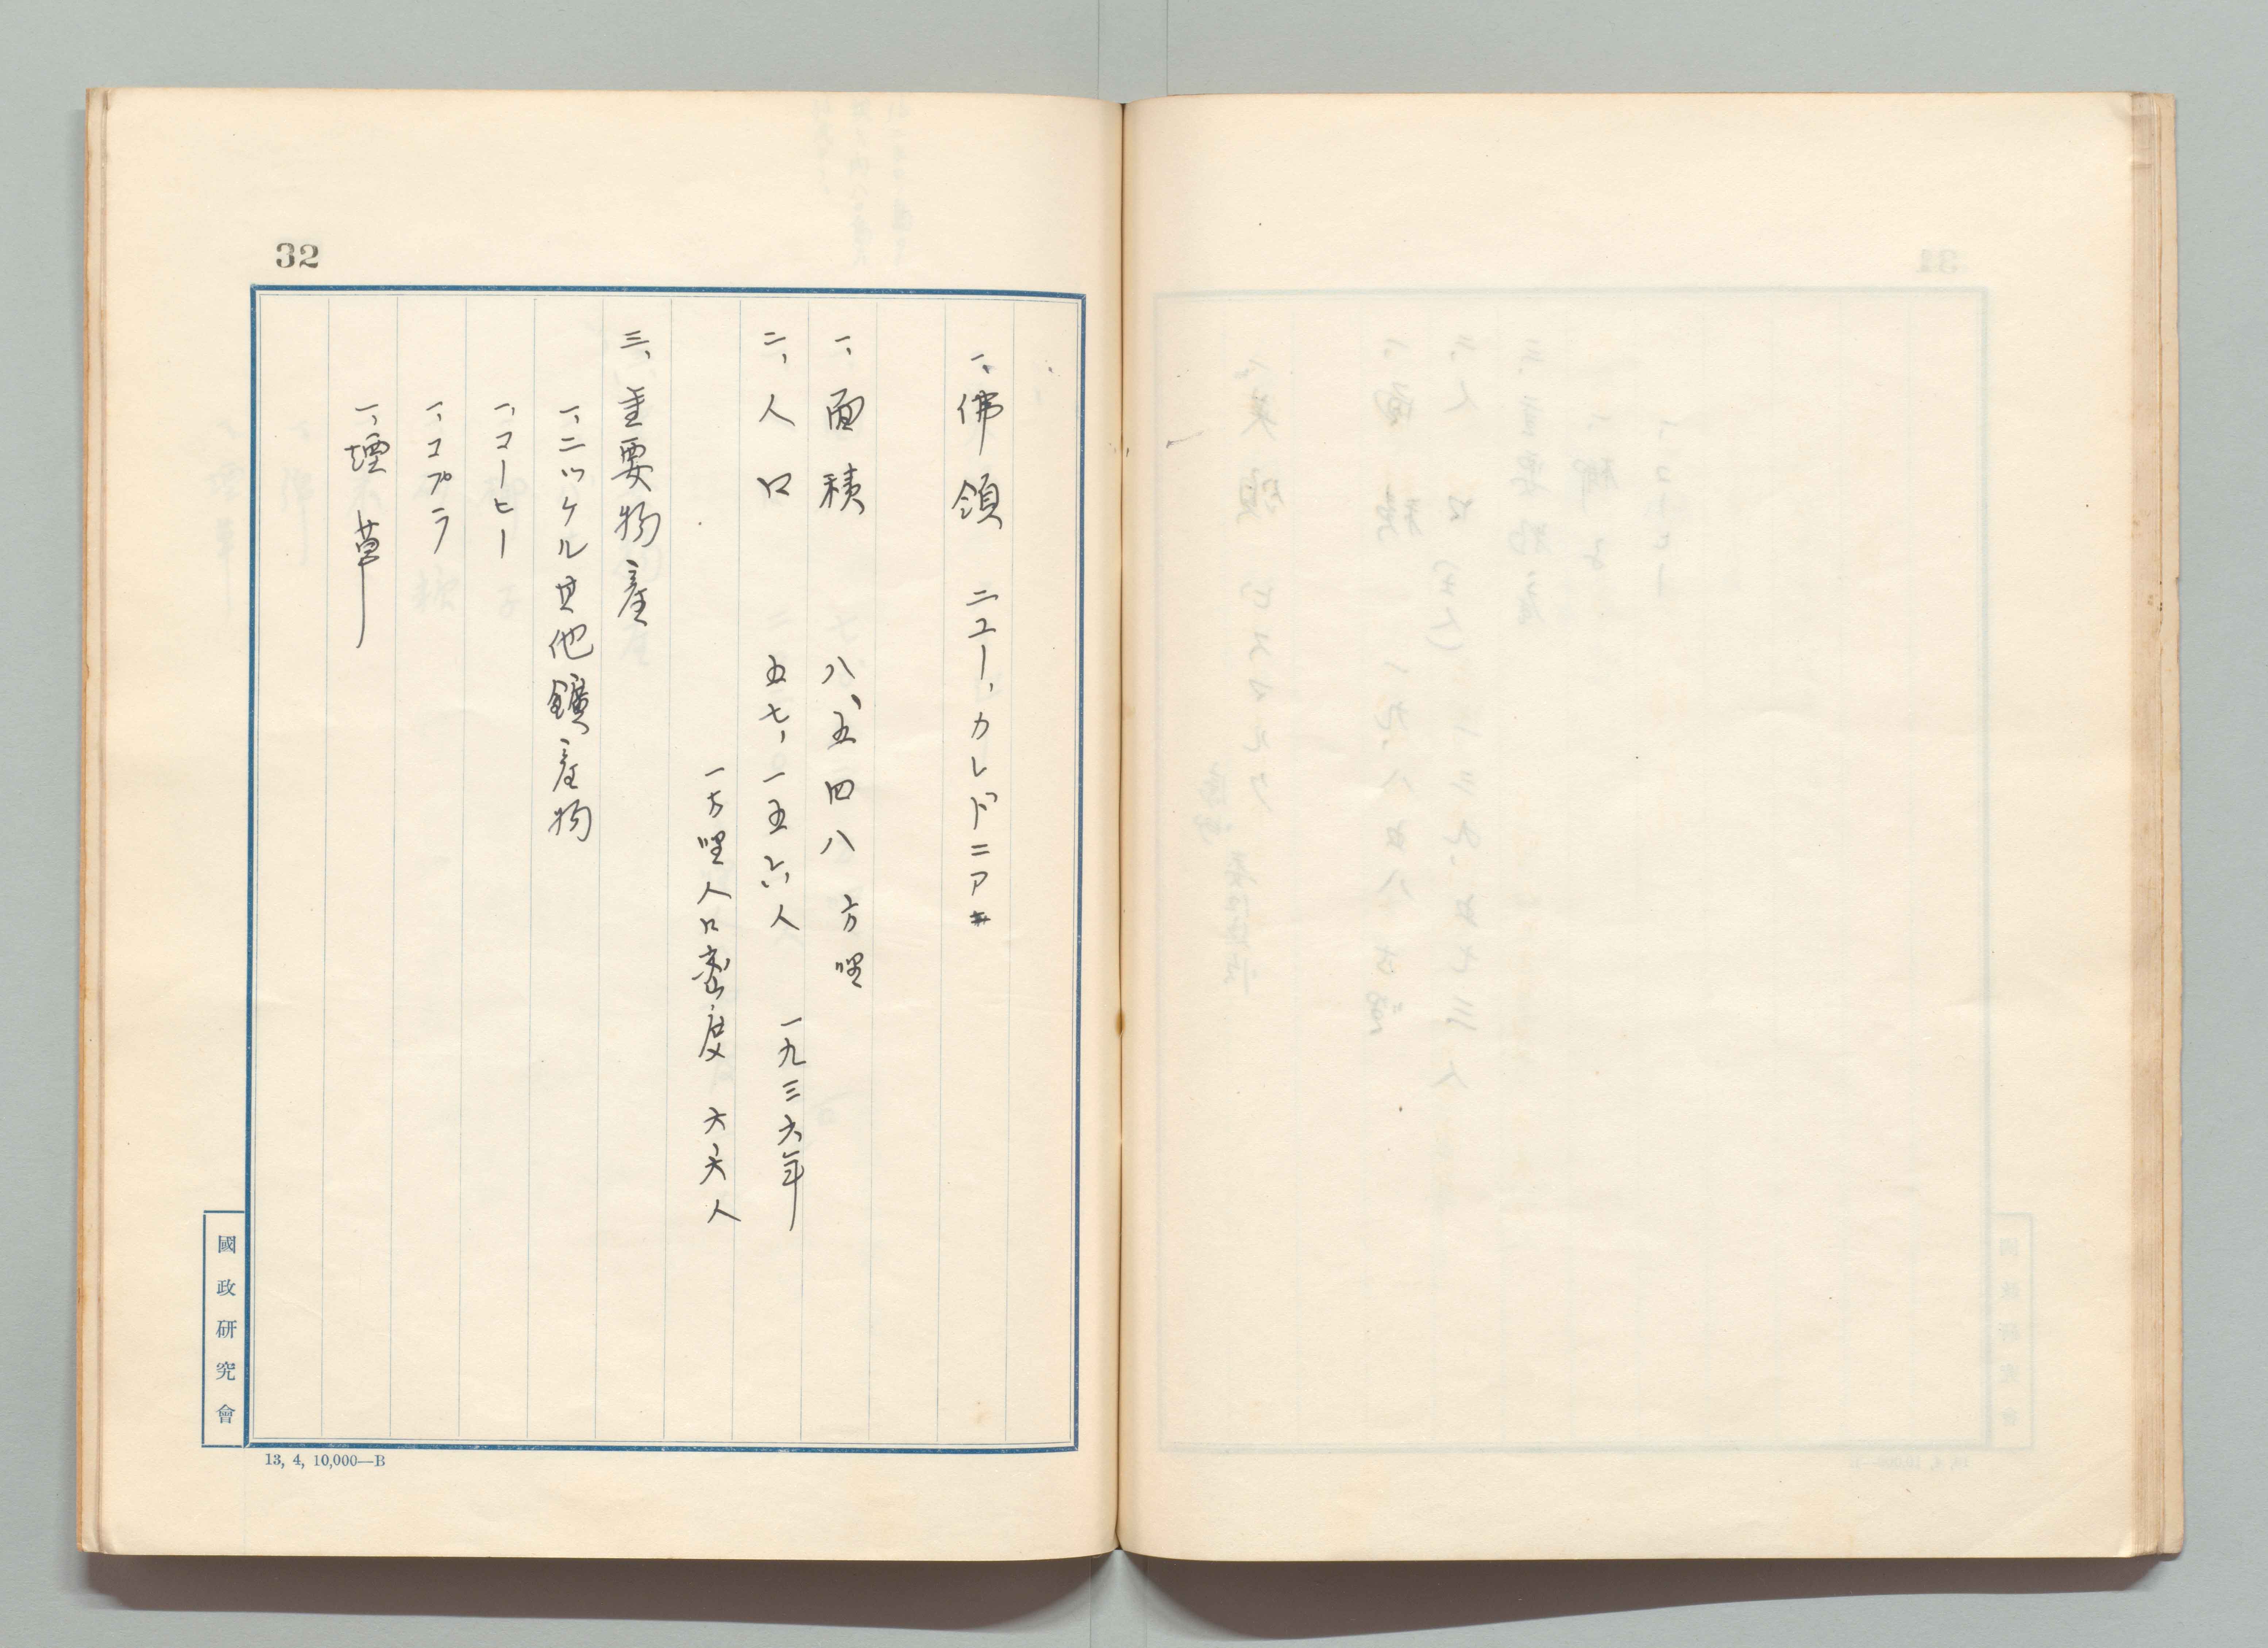 32
一、佛領　ニユー、カレドニア
一、面積　八、五四八方哩
二、人口　五七、一五六人　一九三六年
一方哩人口密度　六六人
三、重要物産
一、ニツケル其他鑛産物
一、コーヒー
一、コプラ
一、煙草
國政研究會
13, 4, 10,000—B